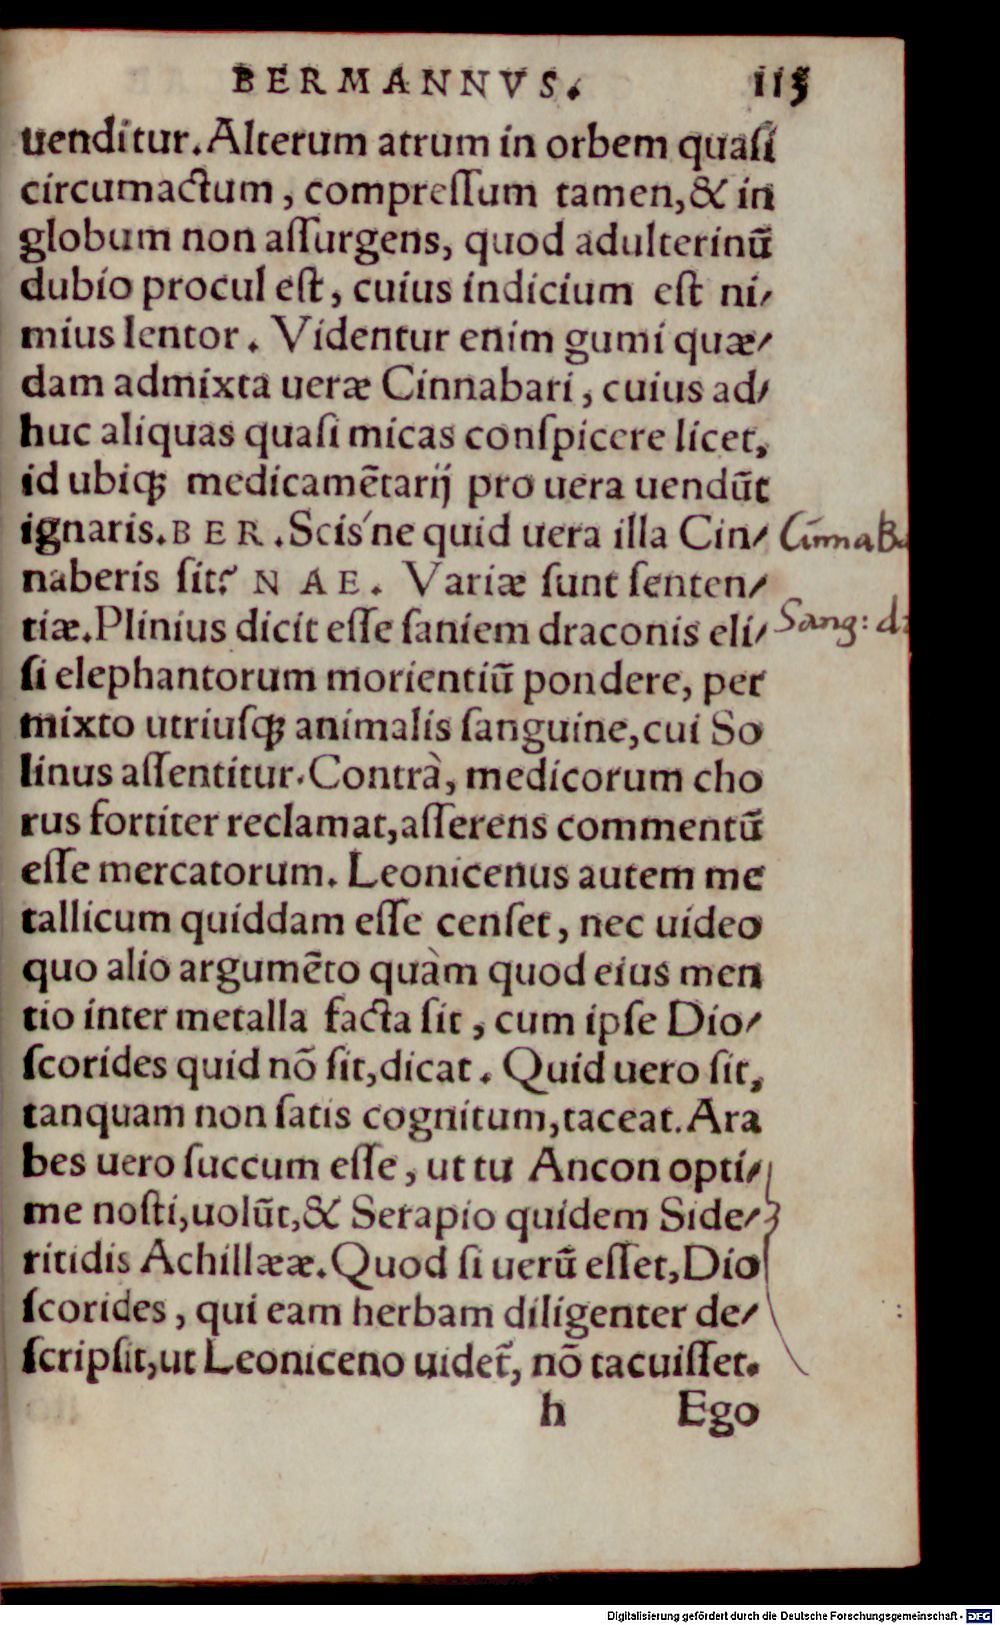 BERMANNVS. 113
uenditur. Alterum atrum in orbem quasi
circumactum, compreſſum tamen, & in
globum non aſſurgens, quod adulterinũ
dubio procul eſt, cuius indicium eſt ni/
mius lentor. Videntur enim gumi quæ/
dam admixta ueræ Cinnabari, cuius ad/
huc aliquas quaſi micas conſpicere licet,
id ubiqꝫ medicamẽtarij pro uera uendũt
ignaris. BER. Scis'ne quid uera illa Cin/
Cinnab
naberis ſit? NAE. Variæ ſunt ſenten/
tiæ. Plinius dicit eſſe ſaniem draconis eli/
Sang: d
ſi elephantorum morientiũ pondere, per
mixto utriuſqꝫ animalis ſanguine, cui So
linus aſſentitur. Contrà, medicorum cho
rus fortiter reclamat, aſſerens commentũ
eſſe mercatorum. Leonicenus autem me
tallicum quiddam eſſe cenſet, nec uideo
quo alio argumẽto quàm quod eius men
tio inter metalla facta ſit, cum ipſe Dio/
ſcorides quid nõ ſit, dicat. Quid uero ſit,
tanquam non ſatis cognitum, taceat. Ara
bes uero ſuccum eſſe, ut tu Ancon opti/
me noſti, uolũt, & Serapio quidem Side/
ritidis Achillææ. Quod ſi uerũ eſſet, Dio
ſcorides, qui eam herbam diligenter de/
ſcripſit, ut Leoniceno uidet᷑, nõ tacuiſſet.
h Ego
Digitalisierung gefördert durch die Deutsche Forschungsgemeinschaft - DFG